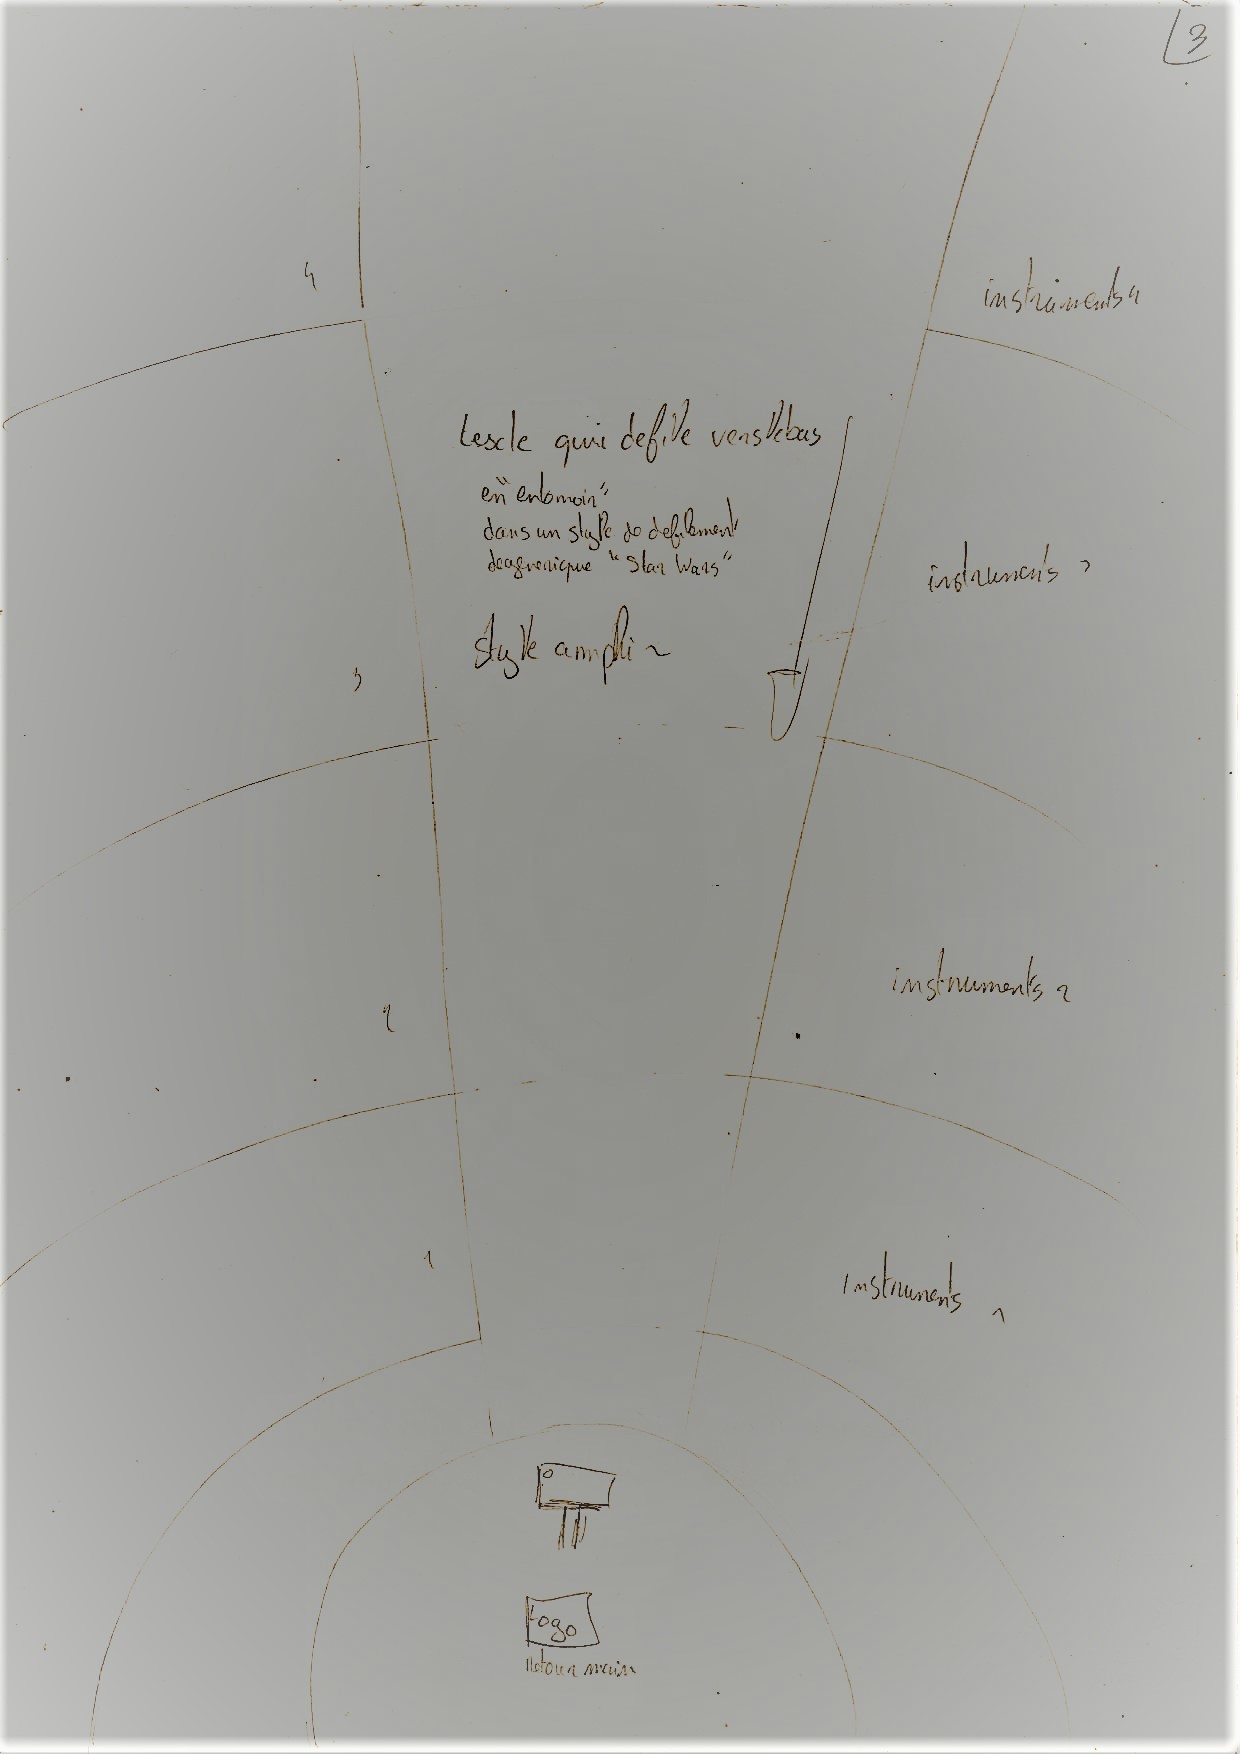 3
4
instruments 4
texte qui defile vers le bas
en "entonnoir"
dans un style de defilement
de generique "Star Wars"
instruments 3
style amphi
3
instruments 2
2
1
instruments 1
Logo
Retour main